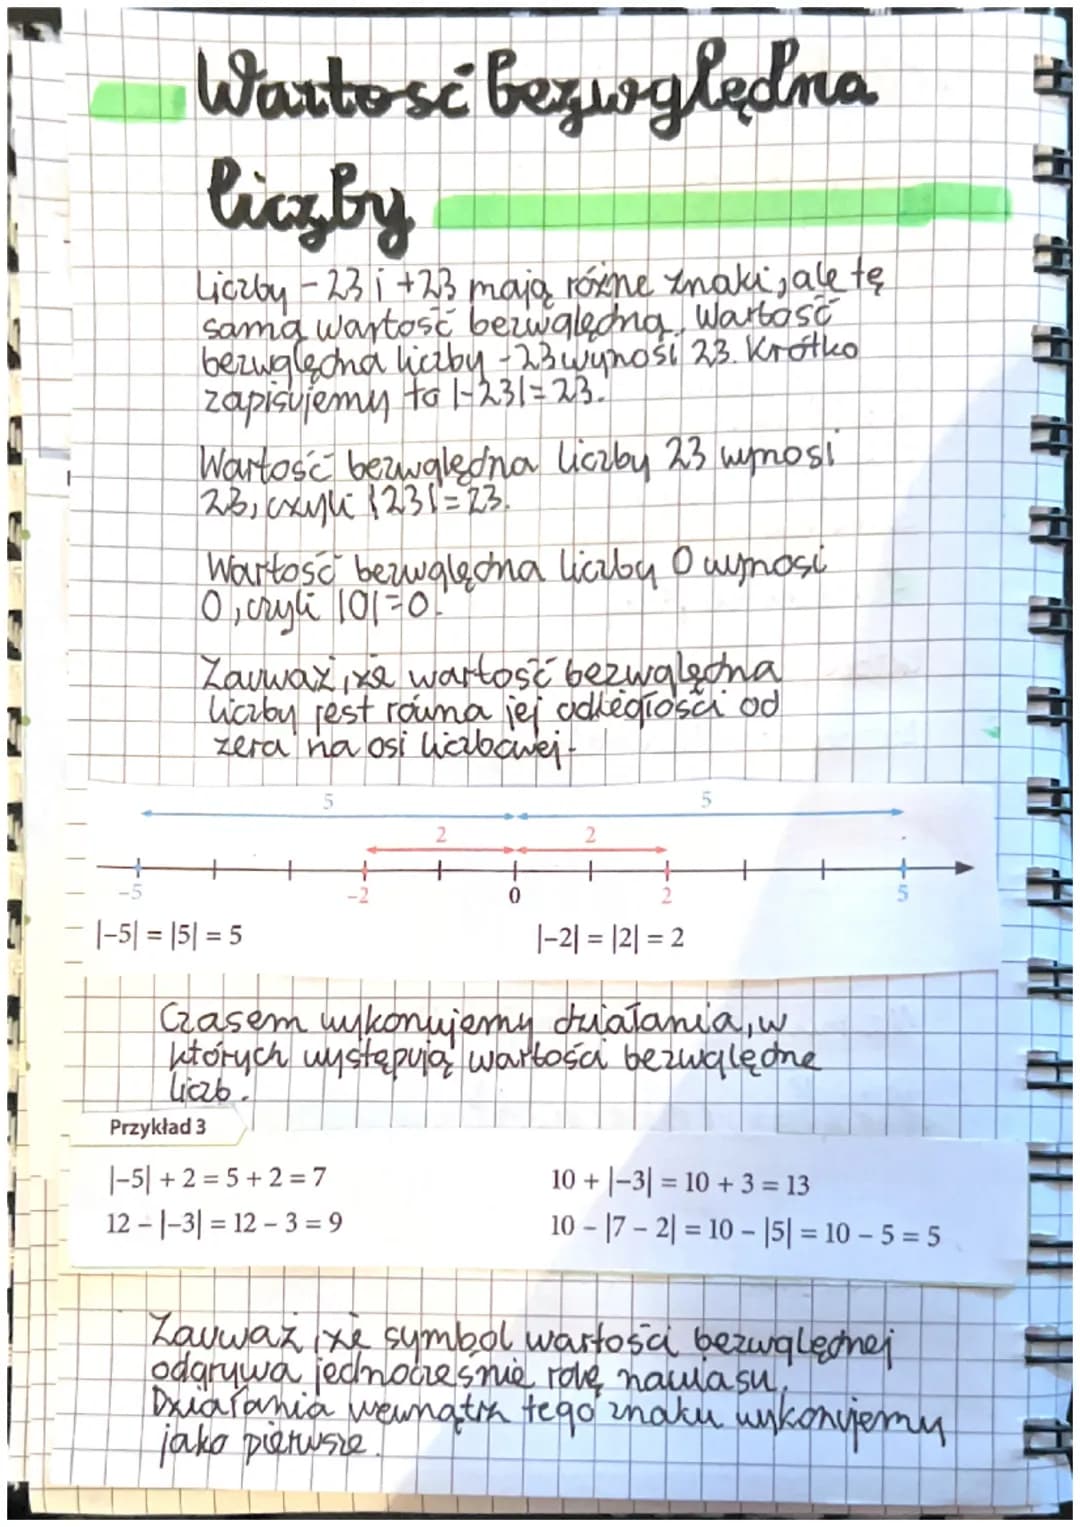 Wartość bezwględna
liczby
Liczby -23 i +23 mają różne znaki, ale tę
samą wartość bezwględną. Wartość
bezwględna liczby -23 wynosi 23. Krótko
zapisujemy to |-23|=23.
Wartość bezwględna liczby 23 wynosi
23, czyli |23|=23.
Wartość bezwględna liczby 0 wynosi
0, czyli |0|=0.
Zauważ, że wartość bezwględna
liczby jest równa jej odległości od
zera na osi liczbowej.
5 5
2 2
-5 -2 0 2 5
|-5| = |5| = 5 |-2| = |2| = 2
Czasem wykonujemy działania, w
których występują wartości bezwględne
liczb.
Przykład 3
|-5| + 2 = 5 + 2 = 7 10 + |-3| = 10 + 3 = 13
12 - |-3| = 12 - 3 = 9 10 - |7 - 2| = 10 - |5| = 10 - 5 = 5
Zauważ, że symbol wartości bezwględnej
odgrywa jednocześnie rolę nawiasu.
Działania wewnątrz tego znaku wykonujemy
jako pierwsze.